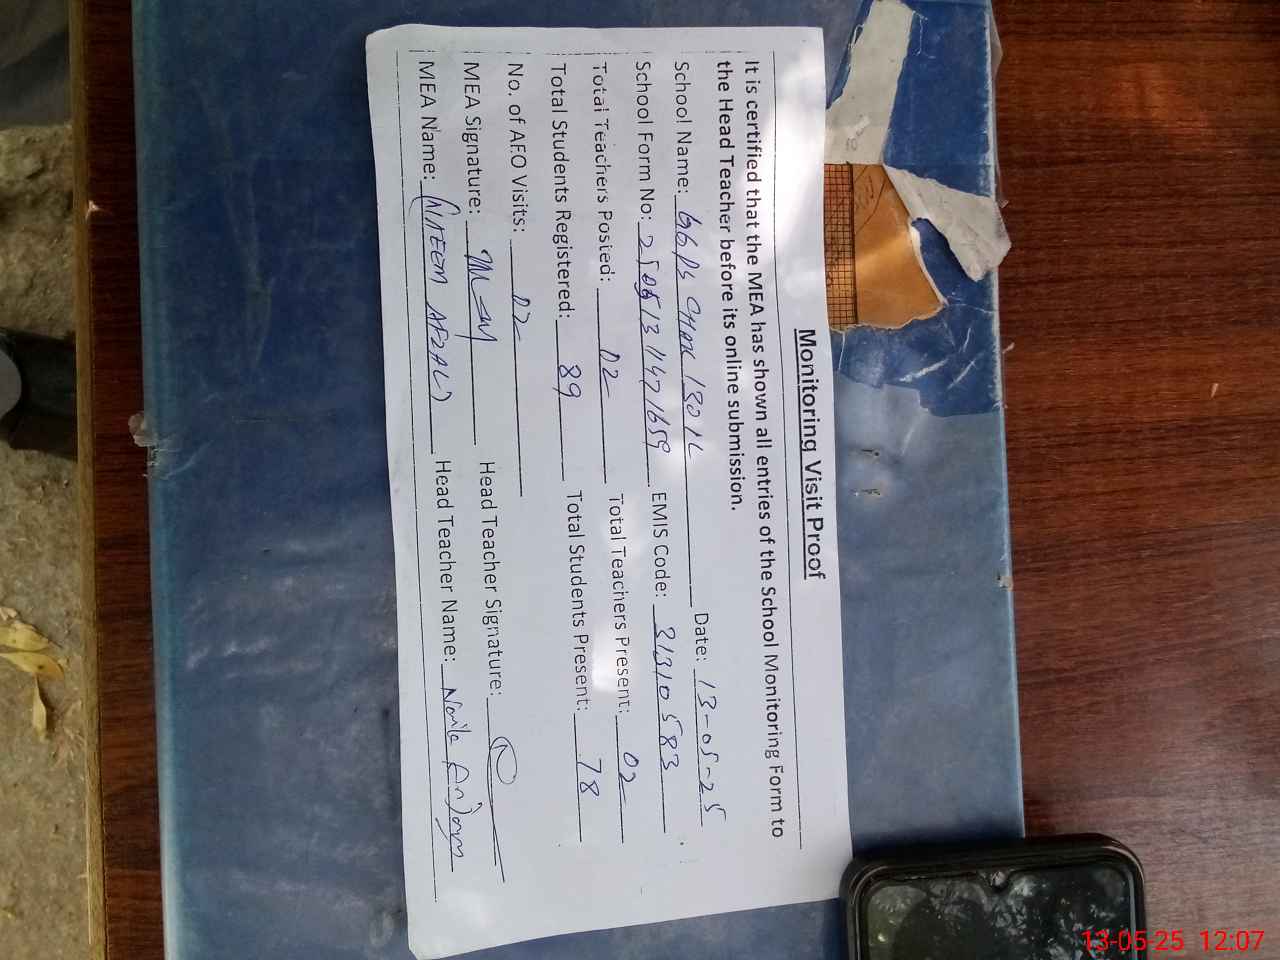 Monitoring Visit Proof
It is certified that the MEA has shown all entries of the School Monitoring Form to
the Head Teacher before its online submission.
School Name: GGPS CHAK 130 1L Date: 13-05-25
School Form No: EMIS Code: 31310583
Total Teachers Posted: 02 Total Teachers Present: 02
Total Students Registered: 89 Total Students Present: 78
No. of AFO Visits: 02
MEA Signature: Head Teacher Signature:
MEA Name: (NAEEM AFZAL) Head Teacher Name: Naila Anjam
13-05-25 12:07